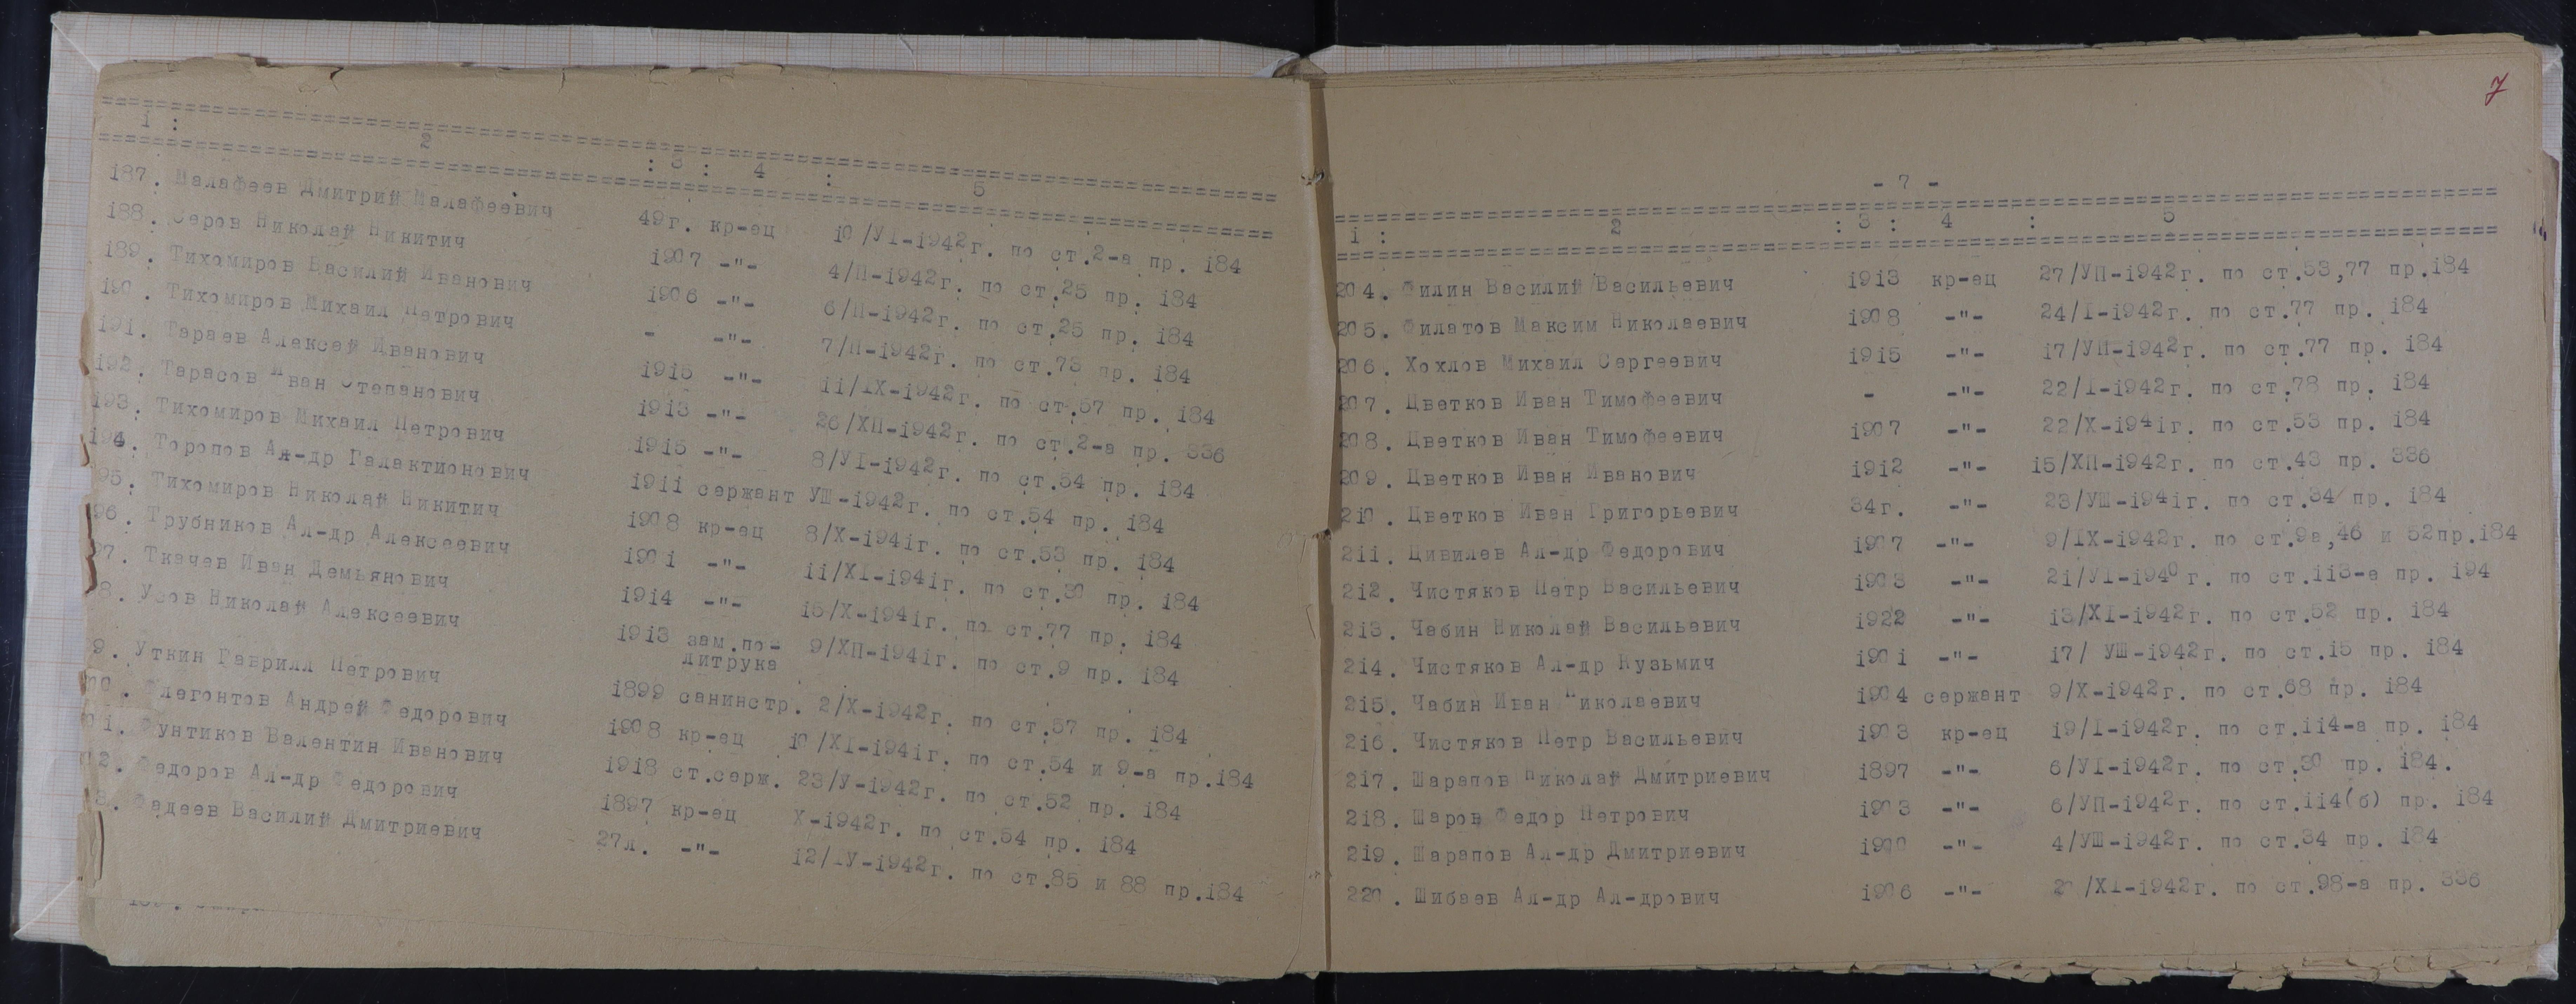 1 : 2 : 3 : 4 : 5
187. Шалафеев Дмитрий Шалафеевич 49г. кр-ец 10/УI-1942г. по ст.2-а пр. 184
188. Серов Николай Никитич 1907 -"- 4/П-1942г. по ст.25 пр. 184
189. Тихомиров Василий Иванович 1906 -"- 6/П-1942г. по ст.25 пр. 184
190. Тихомиров Михаил Петрович - -"- 7/П-1942г. по ст.73 пр. 184
191. Тараев Алексей Иванович 1915 -"- 11/IХ-1942г. по ст.57 пр. 184
192. Тарасов Иван Степанович 1913 -"- 26/ХП-1942г. по ст.2-а пр. 336
193. Тихомиров Михаил Петрович 1915 -"- 8/УI-1942г. по ст.54 пр. 184
194. Торопов Ал-др Галактионович 1911 сержант УШ-1942г. по ст.54 пр. 184
95. Тихомиров Николай Никитич 1908 кр-ец 8/Х-1941г. по ст.53 пр. 184
96. Трубников Ал-др Алексеевич 1901 -"- 11/ХI-1941г. по ст.30 пр. 184
97. Ткачев Иван Демьянович 1914 -"- 15/Х-1941г. по ст.77 пр. 184
8. Узов Николай Алексеевич 1913 зам.по- 9/ХП-1941г. по ст.9 пр. 184
литрука
9. Уткин Гаврилл Петрович 1899 санинстр. 2/Х-1942г. по ст.57 пр. 184
00. Флегонтов Андрей Федорович 1908 кр-ец 10/ХI-1941г. по ст.54 и 9-а пр.184
01. Фунтиков Валентин Иванович 1918 ст.серж. 23/У-1942г. по ст.52 пр. 184
02. Федоров Ал-др Федорович 1897 кр-ец Х-1942г. по ст.54 пр. 184
3. Фадеев Василий Дмитриевич 27л. -"- 12/IУ-1942г. по ст.85 и 88 пр.184
7
- 7 -
1 : 2 : 3 : 4 : 5
204. Филин Василий Васильевич 1913 кр-ец 27/УП-1942г. по ст.53,77 пр.184
205. Филатов Максим Николаевич 1908 -"- 24/I-1942г. по ст.77 пр. 184
206. Хохлов Михаил Сергеевич 1915 -"- 17/УП-1942г. по ст.77 пр. 184
207. Цветков Иван Тимофеевич - -"- 22/I-1942г. по ст.78 пр. 184
208. Цветков Иван Тимофеевич 1907 -"- 22/Х-1941г. по ст.53 пр. 184
209. Цветков Иван Иванович 1912 -"- 15/ХП-1942г. по ст.43 пр. 336
210. Цветков Иван Григорьевич 34г. -"- 23/УШ-1941г. по ст.34 пр. 184
211. Цивилев Ал-др Федорович 1907 -"- 9/IХ-1942г. по ст.9а,46 и 52пр.184
212. Чистяков Петр Васильевич 1903 -"- 21/УI-1940г. по ст.113-а пр. 194
213. Чабин Николай Васильевич 1922 -"- 13/ХI-1942г. по ст.52 пр. 184
214. Чистяков Ал-др Кузьмич 1901 -"- 17/ УШ-1942г. по ст.15 пр. 184
215. Чабин Иван Николаевич 1904 сержант 9/Х-1942г. по ст.68 пр. 184
216. Чистяков Петр Васильевич 1903 кр-ец 19/I-1942г. по ст.114-а пр. 184
217. Шарапов Николай Дмитриевич 1897 -"- 6/УI-1942г. по ст.30 пр. 184.
218. Шаров Федор Петрович 1903 -"- 6/УП-1942г. по ст.114(б) пр. 184
219. Шарапов Ал-др Дмитриевич 1900 -"- 4/УШ-1942г. по ст.34 пр. 184
220. Шибаев Ал-др Ал-дрович 1906 -"- 20/ХI-1942г. по ст.98-а пр. 336